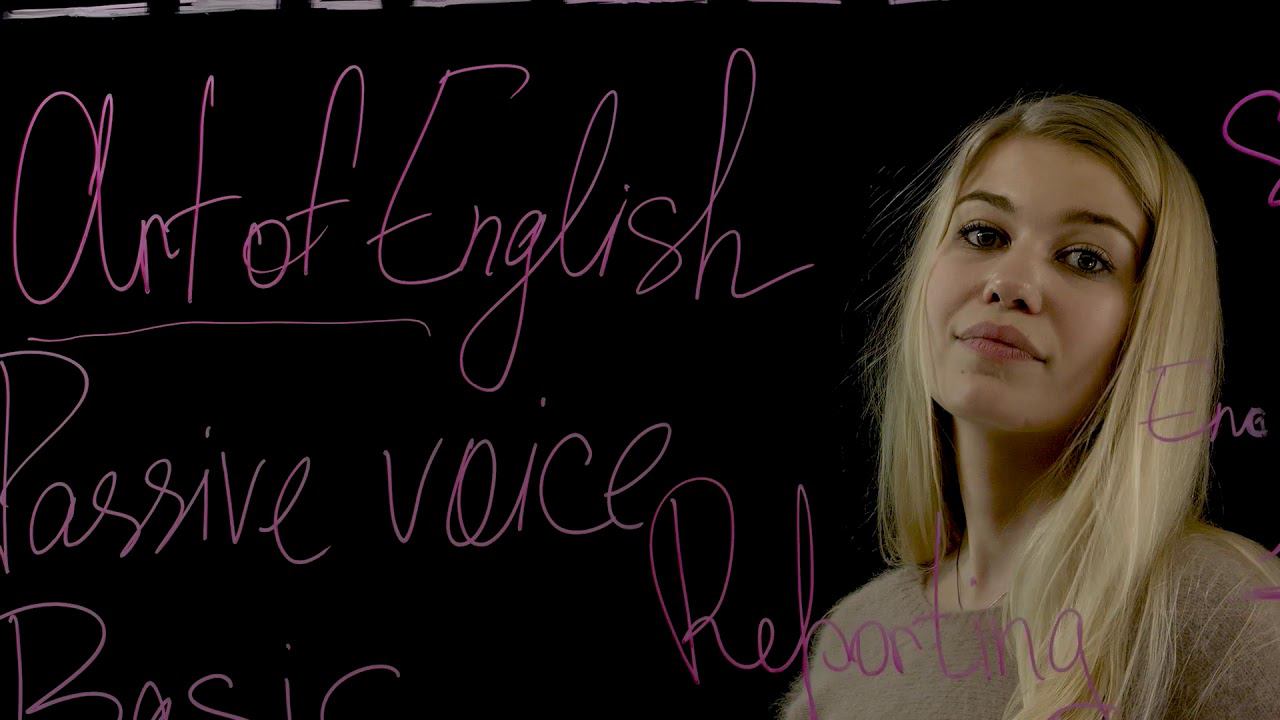 Art of English
Passive voice
Reporting
Basic